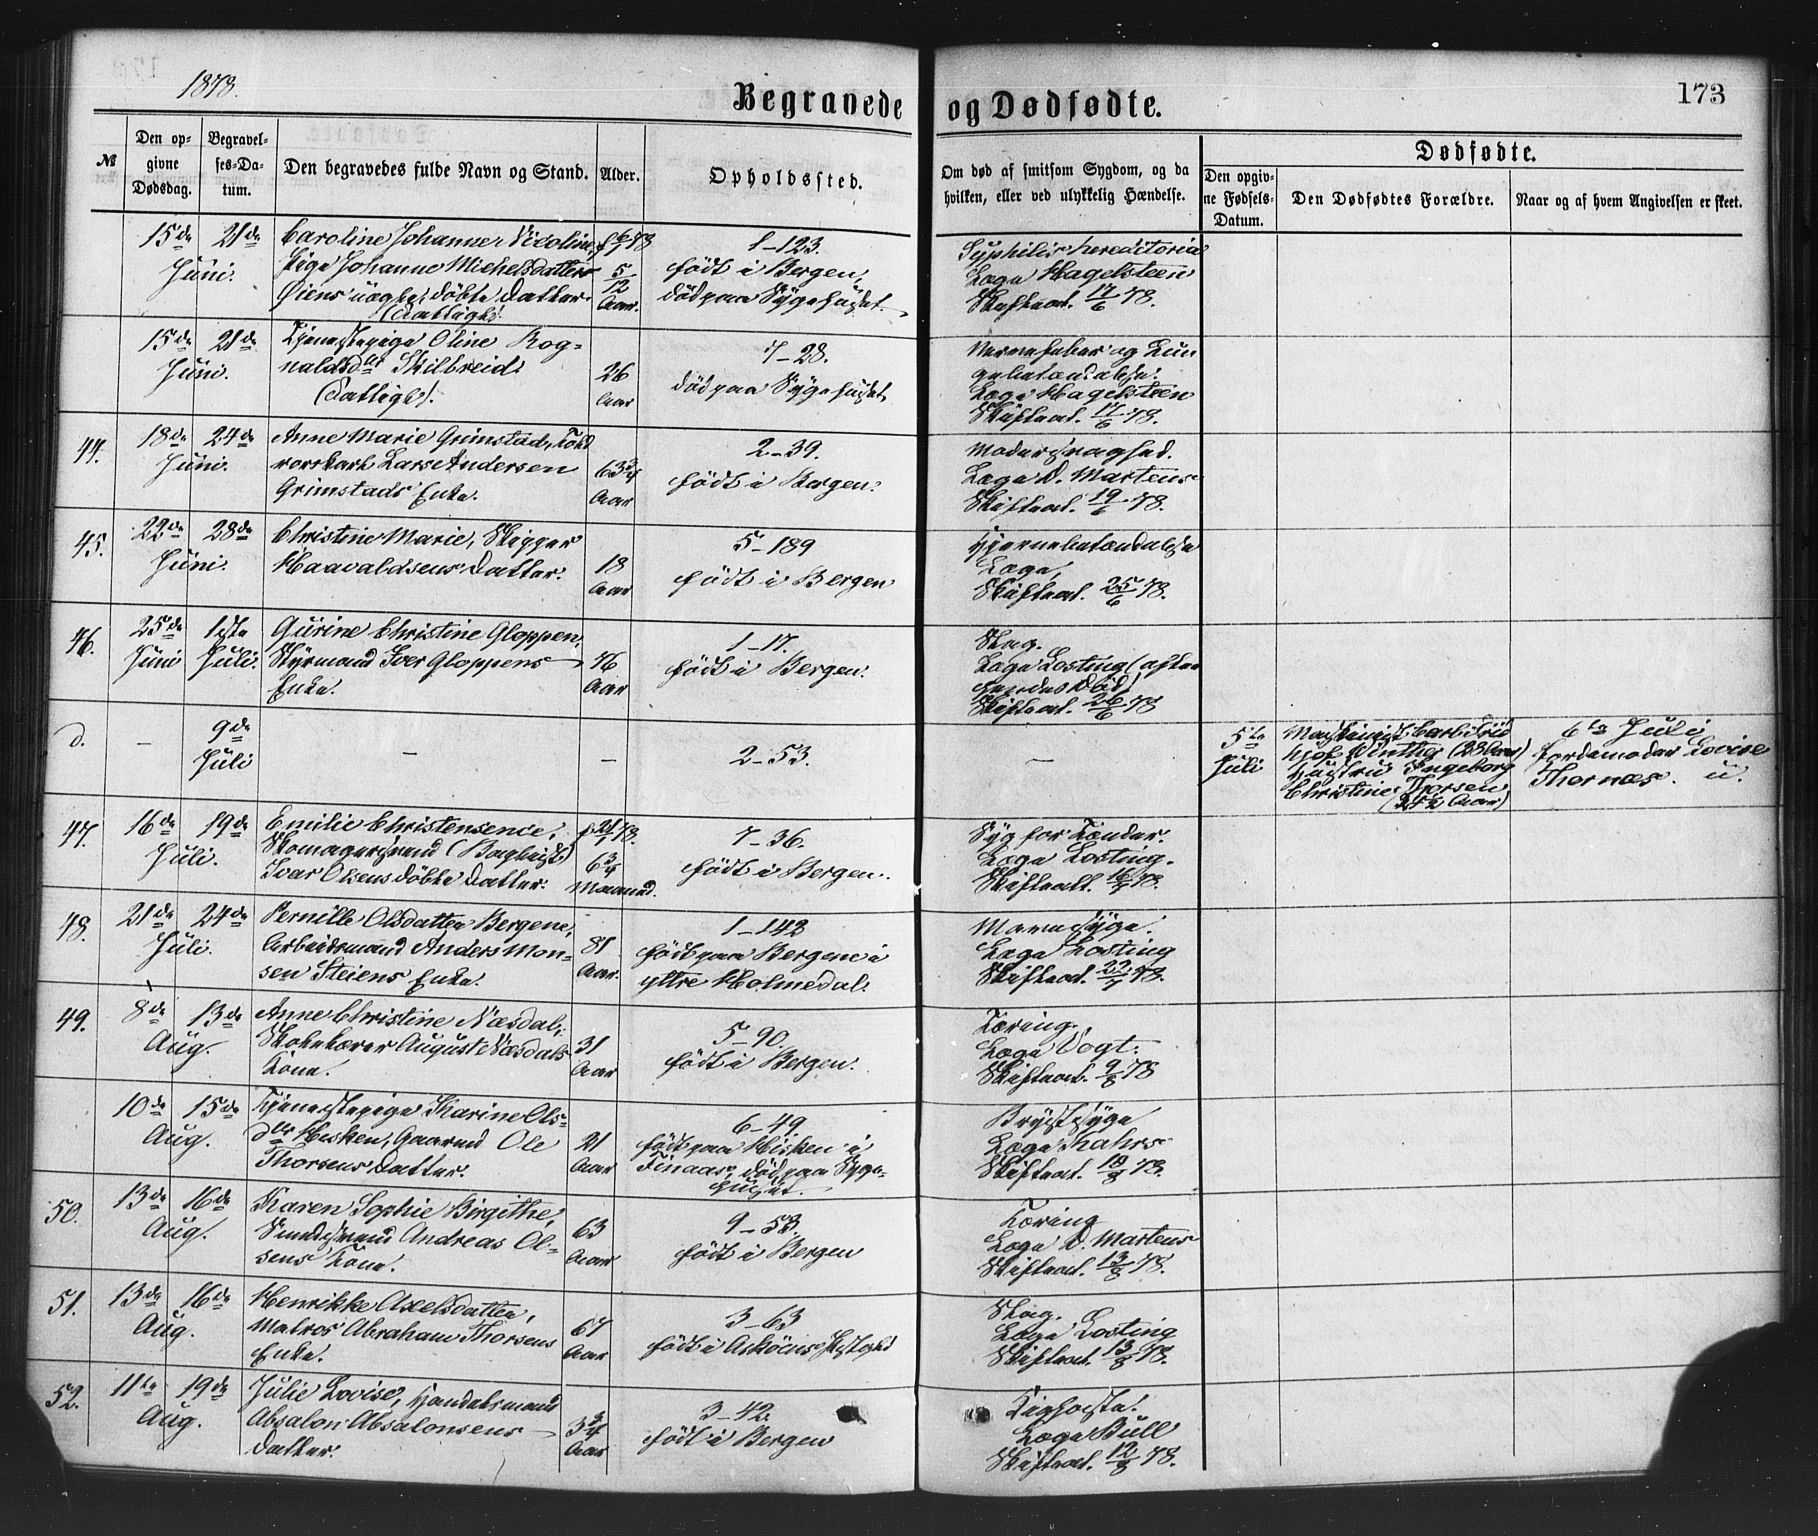 1878.
Begravede og Dødfødte.
173
№
Den op-
givne
Dødsdag.
Begravel-
ses-Da-
tum.
Den begravedes fulde Navn og Stand.
Alder.
Opholdssted.
Om død af smitsom Sygdom, og da
hvilken, eller ved ulykkelig Hændelse.
Dødfødte.
Den opgiv-
ne Fødsels-
Datum.
Den Dødfødtes Forældre.
Naar og af hvem Angivelsen er skeet.
15de
Juni.
21de
Caroline Johanne Nicoline,
Pige Johanne Michelsdatter
Øiens uægte, døbte Datter.
(Fattiglig)
5/12
Aar.
1-123.
født i Bergen,
død paa Sygehuset
Syphilis hereditoria
Læge Hagelsteen
Skifteat. 17/6 78.
15de
Juni.
21de
Tjenestepige Oline Rog-
naldsdtr Skilbreid.
(Fattiglig).
26
Aar
7-28.
død paa Sygehuset
Nervefeber og Lun
gebetændelse.
Læge Hagelsteen
Skifteat. 17/6 78.
44.
18de
Juni.
24de
Anne Marie Grimstad,
Lars Andersen
Grimstads Enke.
63 3/4
Aar
2-39.
født i Bergen.
Læge D. Martens
Skifteat. 19/6 78.
45.
22de
Juni.
28de
Christine Marie, Skipper
Haavaldsens Datter.
18
Aar
5-189
født i Bergen
Hjernebetændelse
Læge,
Skifteat. 25/6 78.
46.
25de
Juni
1ste
Juli.
Gurine Christine Gloppen,
Styrmand Iver Gloppens
Enke.
76
Aar
1-17.
født i Bergen.
Slag.
Læge Losting (efter
hendes Død)
Skifteat. 26/6 78
d.
-
9de
Juli
-
-
2-53.
-
5te
Juli
Maskinist Carl Frid
hjof Winther (28 Aar)
Hustru Ingeborg
Christine Thorsen
6te Juli
Jordemoder Lovise
Thornæs. u.
47.
16de
Juli.
19de
Emilie Christensence,
Skomagersvend
Ivar Olsens døbte Datter.
6 3/4
Maaned.
7-36.
født i Bergen.
Syg for Tænder.
Læge Losting.
Skifteatt. 16/7 78.
48.
21de
Juli.
24de
Pernille Olsdatter Bergene,
Arbeidsmand Anders Mon-
sen Steiens Enke.
81
Aar.
1-142
født paa Bergene i
yttre Holmedal.
Mavesyge.
Læge Losting
Skifteat. 22/7 78.
49.
8de
Aug.
13de
Anne Christine Næsdal,
August Næsdals
Kone.
31
Aar
5-90.
født i Bergen.
Tæring.
Læge Vogt.
Skifteat. 9/8 78
10de
Aug.
15de
Tjenestepige Karine Ols-
dtr Hisken, Gaardmd Ole
Thorsens Datter.
21
Aar
6-49
født paa Hisken i
Finaas, død paa Syge-
huset.
Brystsyge
Læge Kahrs
Skifteat. 10/8 78.
50.
13de
Aug.
16de
Karen Sophie Birgithe,
Smedesvend Andreas Ol-
sens Kone.
63
Aar
9-53.
født i Bergen
Tæring
Læge D. Martens
Skifteat. 13/8 78.
51.
13de
Aug.
16de
Henrikke Axelsdatter,
Matros Abraham Thorsens
Enke.
67
Aar
3-63
født i Askøens Prestegjeld
Slag.
Læge Losting
Skifteat. 13/8 78.
52.
11te
Aug.
19de
Julie Lovise, Handelsmand
Absalon Absalonsens
Datter.
3 3/4
Aar
3-42.
født i Bergen
Kighoste.
Læge Bull
Skifteat. 12/8 78.